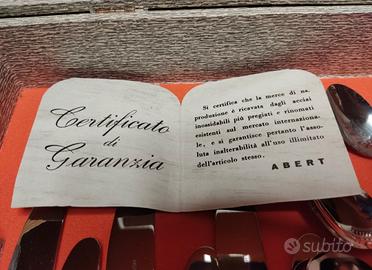 Certificato
di
Garanzia
Si certifica che la merce di na.
produzione é ricavata dagli acciai
inossidabili più pregiati e rinomati
esistenti sul mercato internaziona-
le, e si garantisce pertanto l'asso-
luta inalterabilità all'uso illimitato
dell'articolo stesso.
ABERT
subito